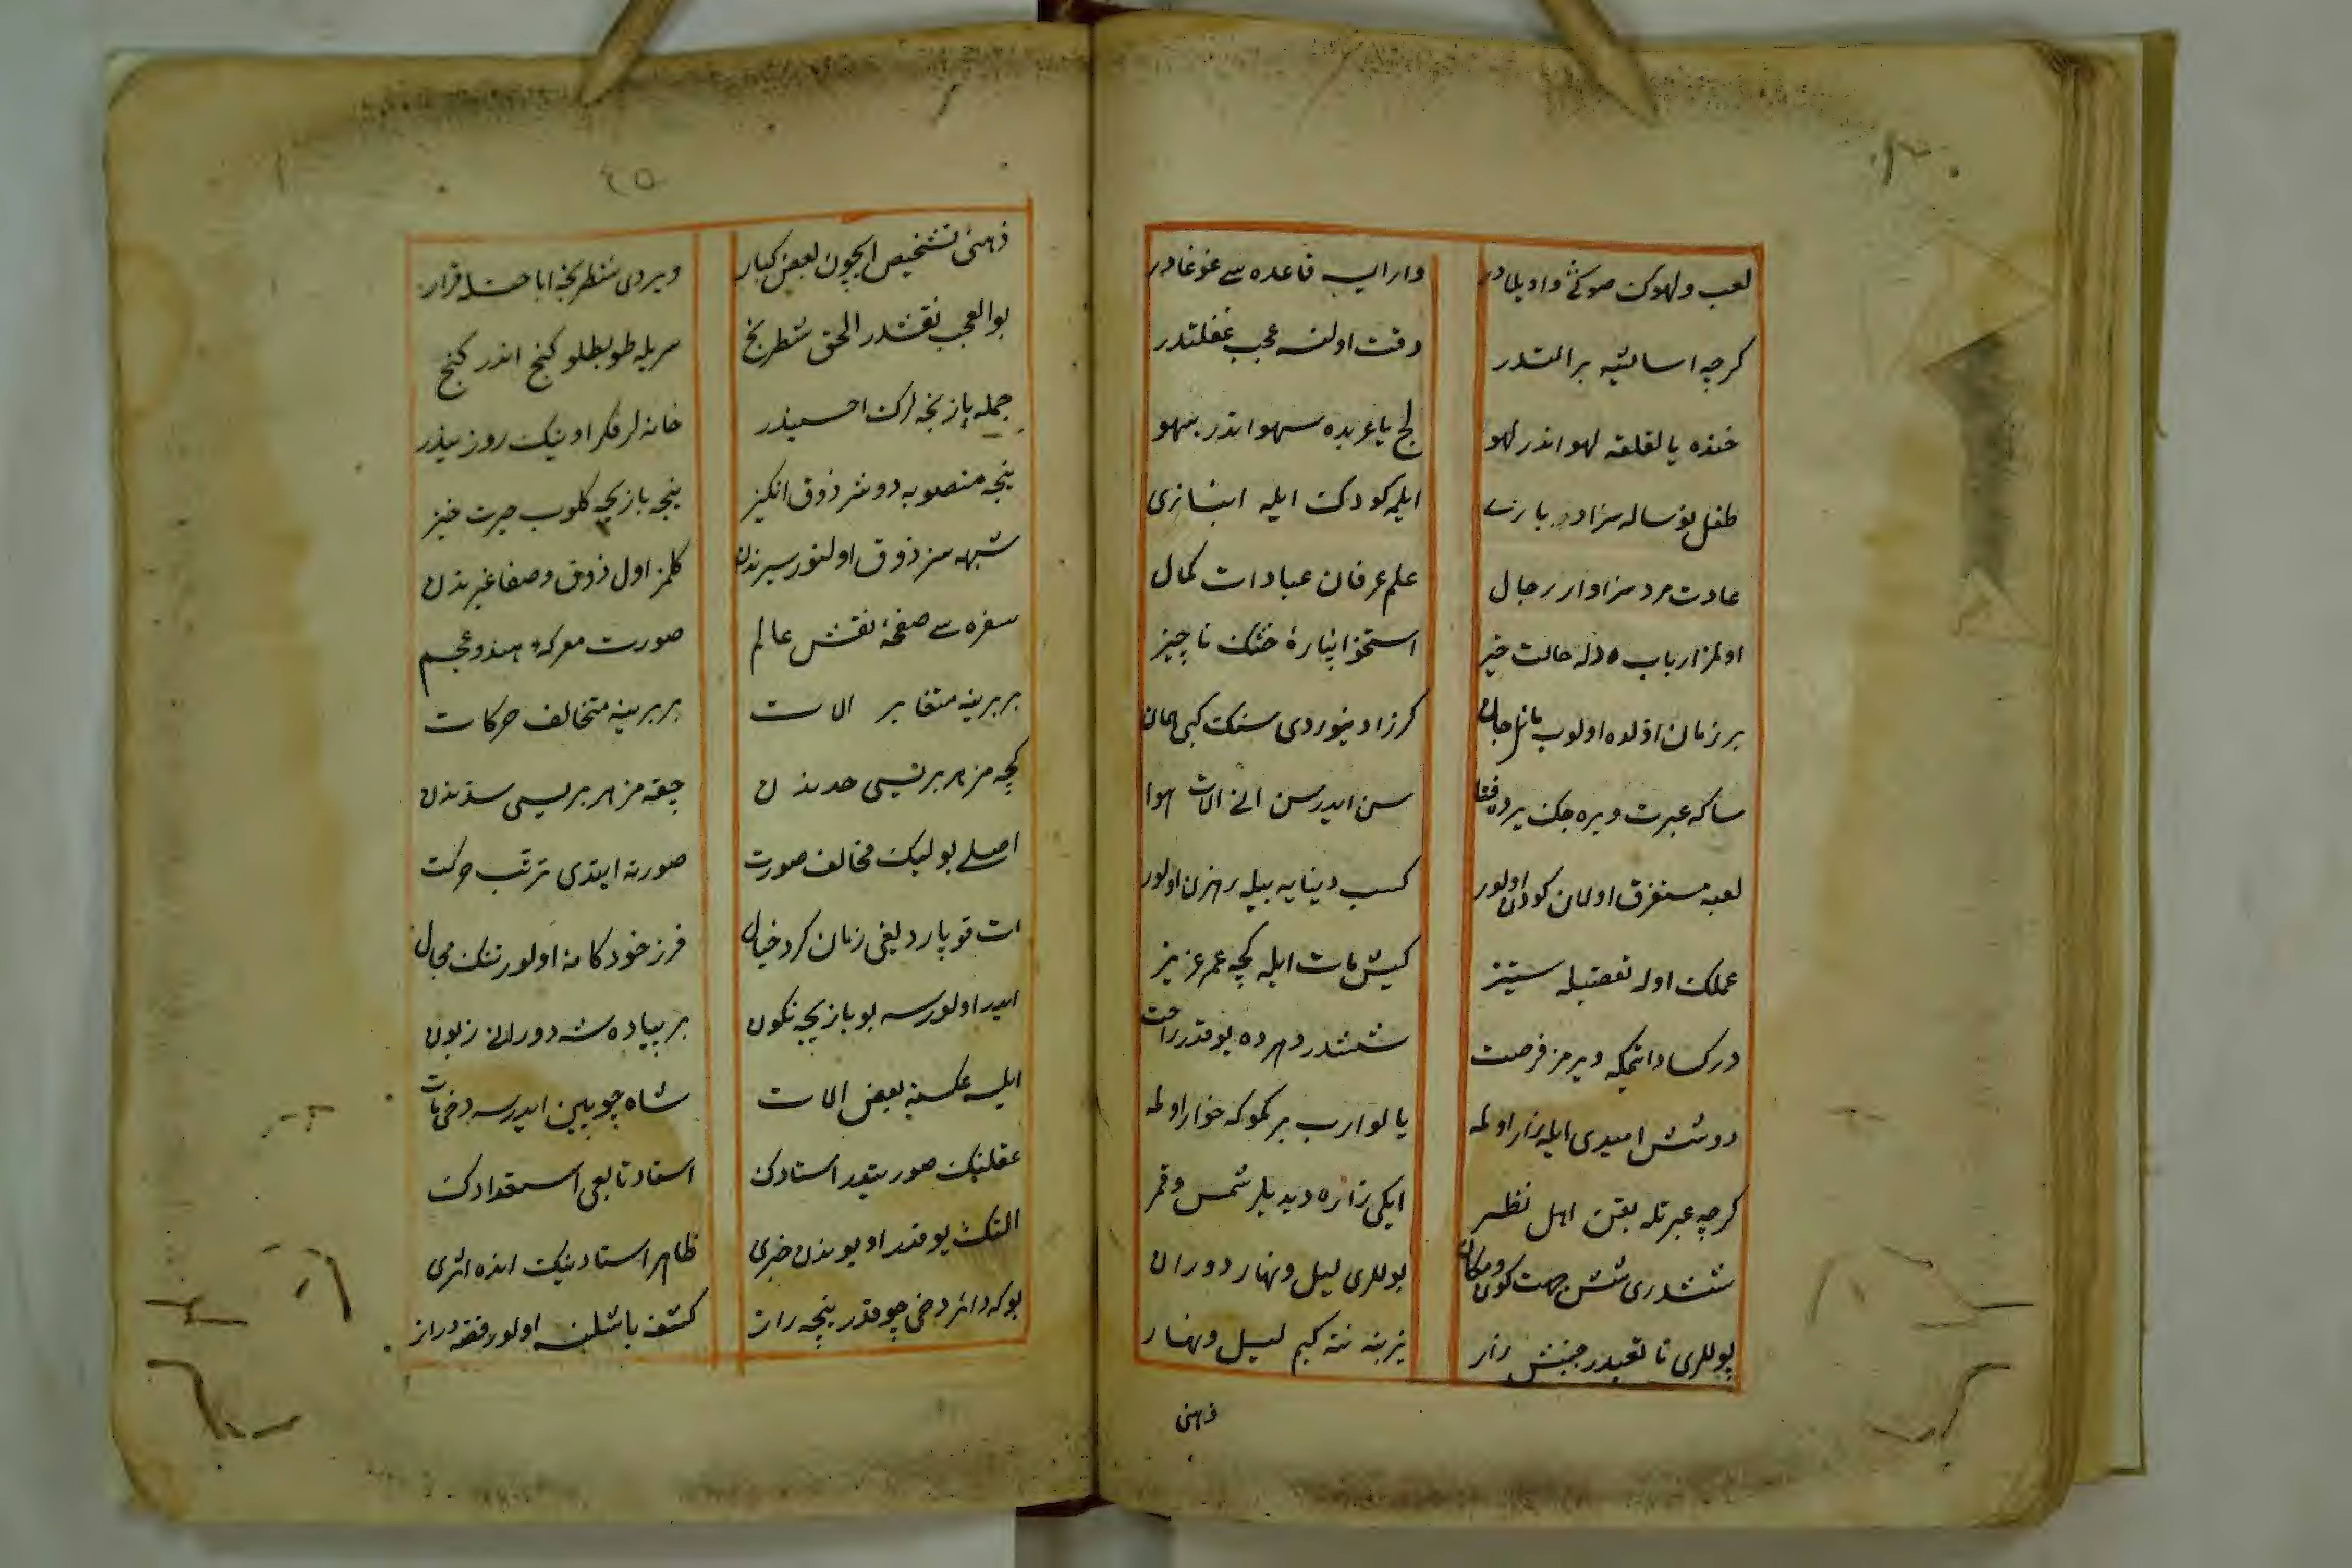 لعب ولهوك صوكی واویلادر
وارایسه قاعده سے غوغادر
كرچه اسانیته برالتدر
دقت اولنسه عجب غفلتدر
خنده یا لقلقه لهو اندر لهو
لج یا عربده سهو اندر سهو
طفل نوساله سزادر بازے
ایلمه كودك ایله انبازی
عادت مرد سزاوار رجال
علم عرفان عبادات كمال
اولمز ارباب دله حالت خیز
استخوانپارهٔ خشك ناچیز
بر زمان اولده اولوب مائل جان
كرزاد ینوردی سنك كبی همان
ساكه عبرت ویره جك یرده فقط
سن ایدرسن انے الات هوا
لعبه مستغرق اولان كودن اولور
كسب دینایه بیله رهزن اولور
عملك اوله تعصبله ستیز
كیش مات ایله كچه عمر عزیز
دركساد ایتمكه ویرمز فرصت
ششدر دهرده یوقدر راحت
دوشش امیدی ایله زار اولمه
یالوارب بر كموكه خوار اولمه
كرچه عبرتله بقن اهل نظر
ایكی زاره دیدیلر شمس و قمر
ششدری شش جهت كون و مكان
پوللری لیل و نهار دوران
پوللری تابعیدر جنبش زار
یزینه نته كیم لیل و نهار
ذهنی
٤٥
ذهنی تشخیص ایچون بعض كبار
ویردی شطرنجه اباحتله قرار
بو العجب نقشدر الحق شطرنج
سریله طوپطلو كنج اندر كنج
جمله بازیچه لرك احسنیدر
خانه لر فكر اوینك روزنیدر
نیجه منصوبه دوشر ذوق انكیز
نیجه بازیچه كلوب حیرت خیز
شبهه سز ذوق اولنور سیرندن
كلمز اول ذوق و صفا غیرندن
سفره سے صفحهٔ نقش عالم
صورت معركهٔ هند و عجم
بربرینه متغایر الات
بربرینه متخالف حركات
كچه مز هر بریسی حدندن
چقه مز هر بریسی سدندن
اصلے بو لیك مخالف صورت
صورته ایتدی ترتب حركت
ات قوپاردیغی زمان كرد خیال
فرز خودكامه اولور تنك مجال
ایدر اولورسه بو بازیچه نكون
بر پیاده شه دورانے زبون
ایلسه عكسنه بعض الات
شاه چوبین ایدرسه دخی مات
عقلنك صورتیدر استادك
استاد تابعی استعدادك
التك یوقدر او یوندن خبری
ظاهر استادینك انده اثری
بوكه دائر دخی چوقدر نیجه راز
كشفه باشلنسه اولور قصه دراز